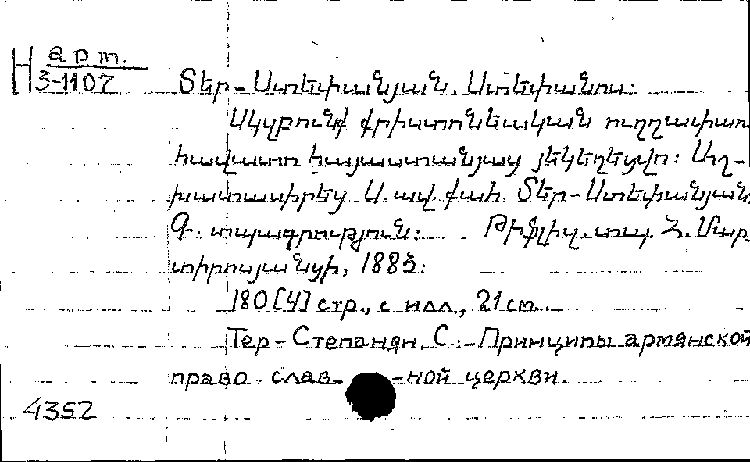 Н арт.
3-1107
Տեր-Ստեփանյան. Ստեփանոս:
Սկզբունք քրիստոնեական ուղղափառ
հավատո հայաստանյայ յեկեղեցվո: Աշ-
խատասիրեց Ս. ավ. քահ. Տեր-Ստեփանյան
Գ. տպագրություն: Թիֆլիզ. տպ. Հ. Մար
տիրոսյանցի, 1885.
180 [4] стр., с илл., 21 см.
Тер-Степанян, С. Принципы армянской
право слав- -ной церкви.
4352